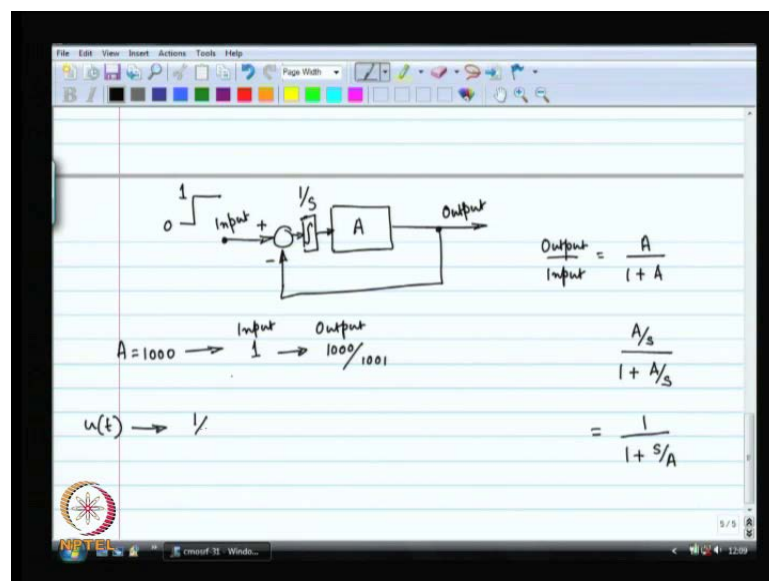 File Edit View Insert Actions Tools Help
Page Width
B I
1
0
Input +
-
1/s
∫
A
Output
Output/Input = A/(1 + A)
Input Output
A = 1000 → 1 → 1000/1001
A/s / (1 + A/s)
u(t) → 1/
= 1/(1 + s/A)
5/5
NPTEL
cmosrf-31 - Windo...
12:09